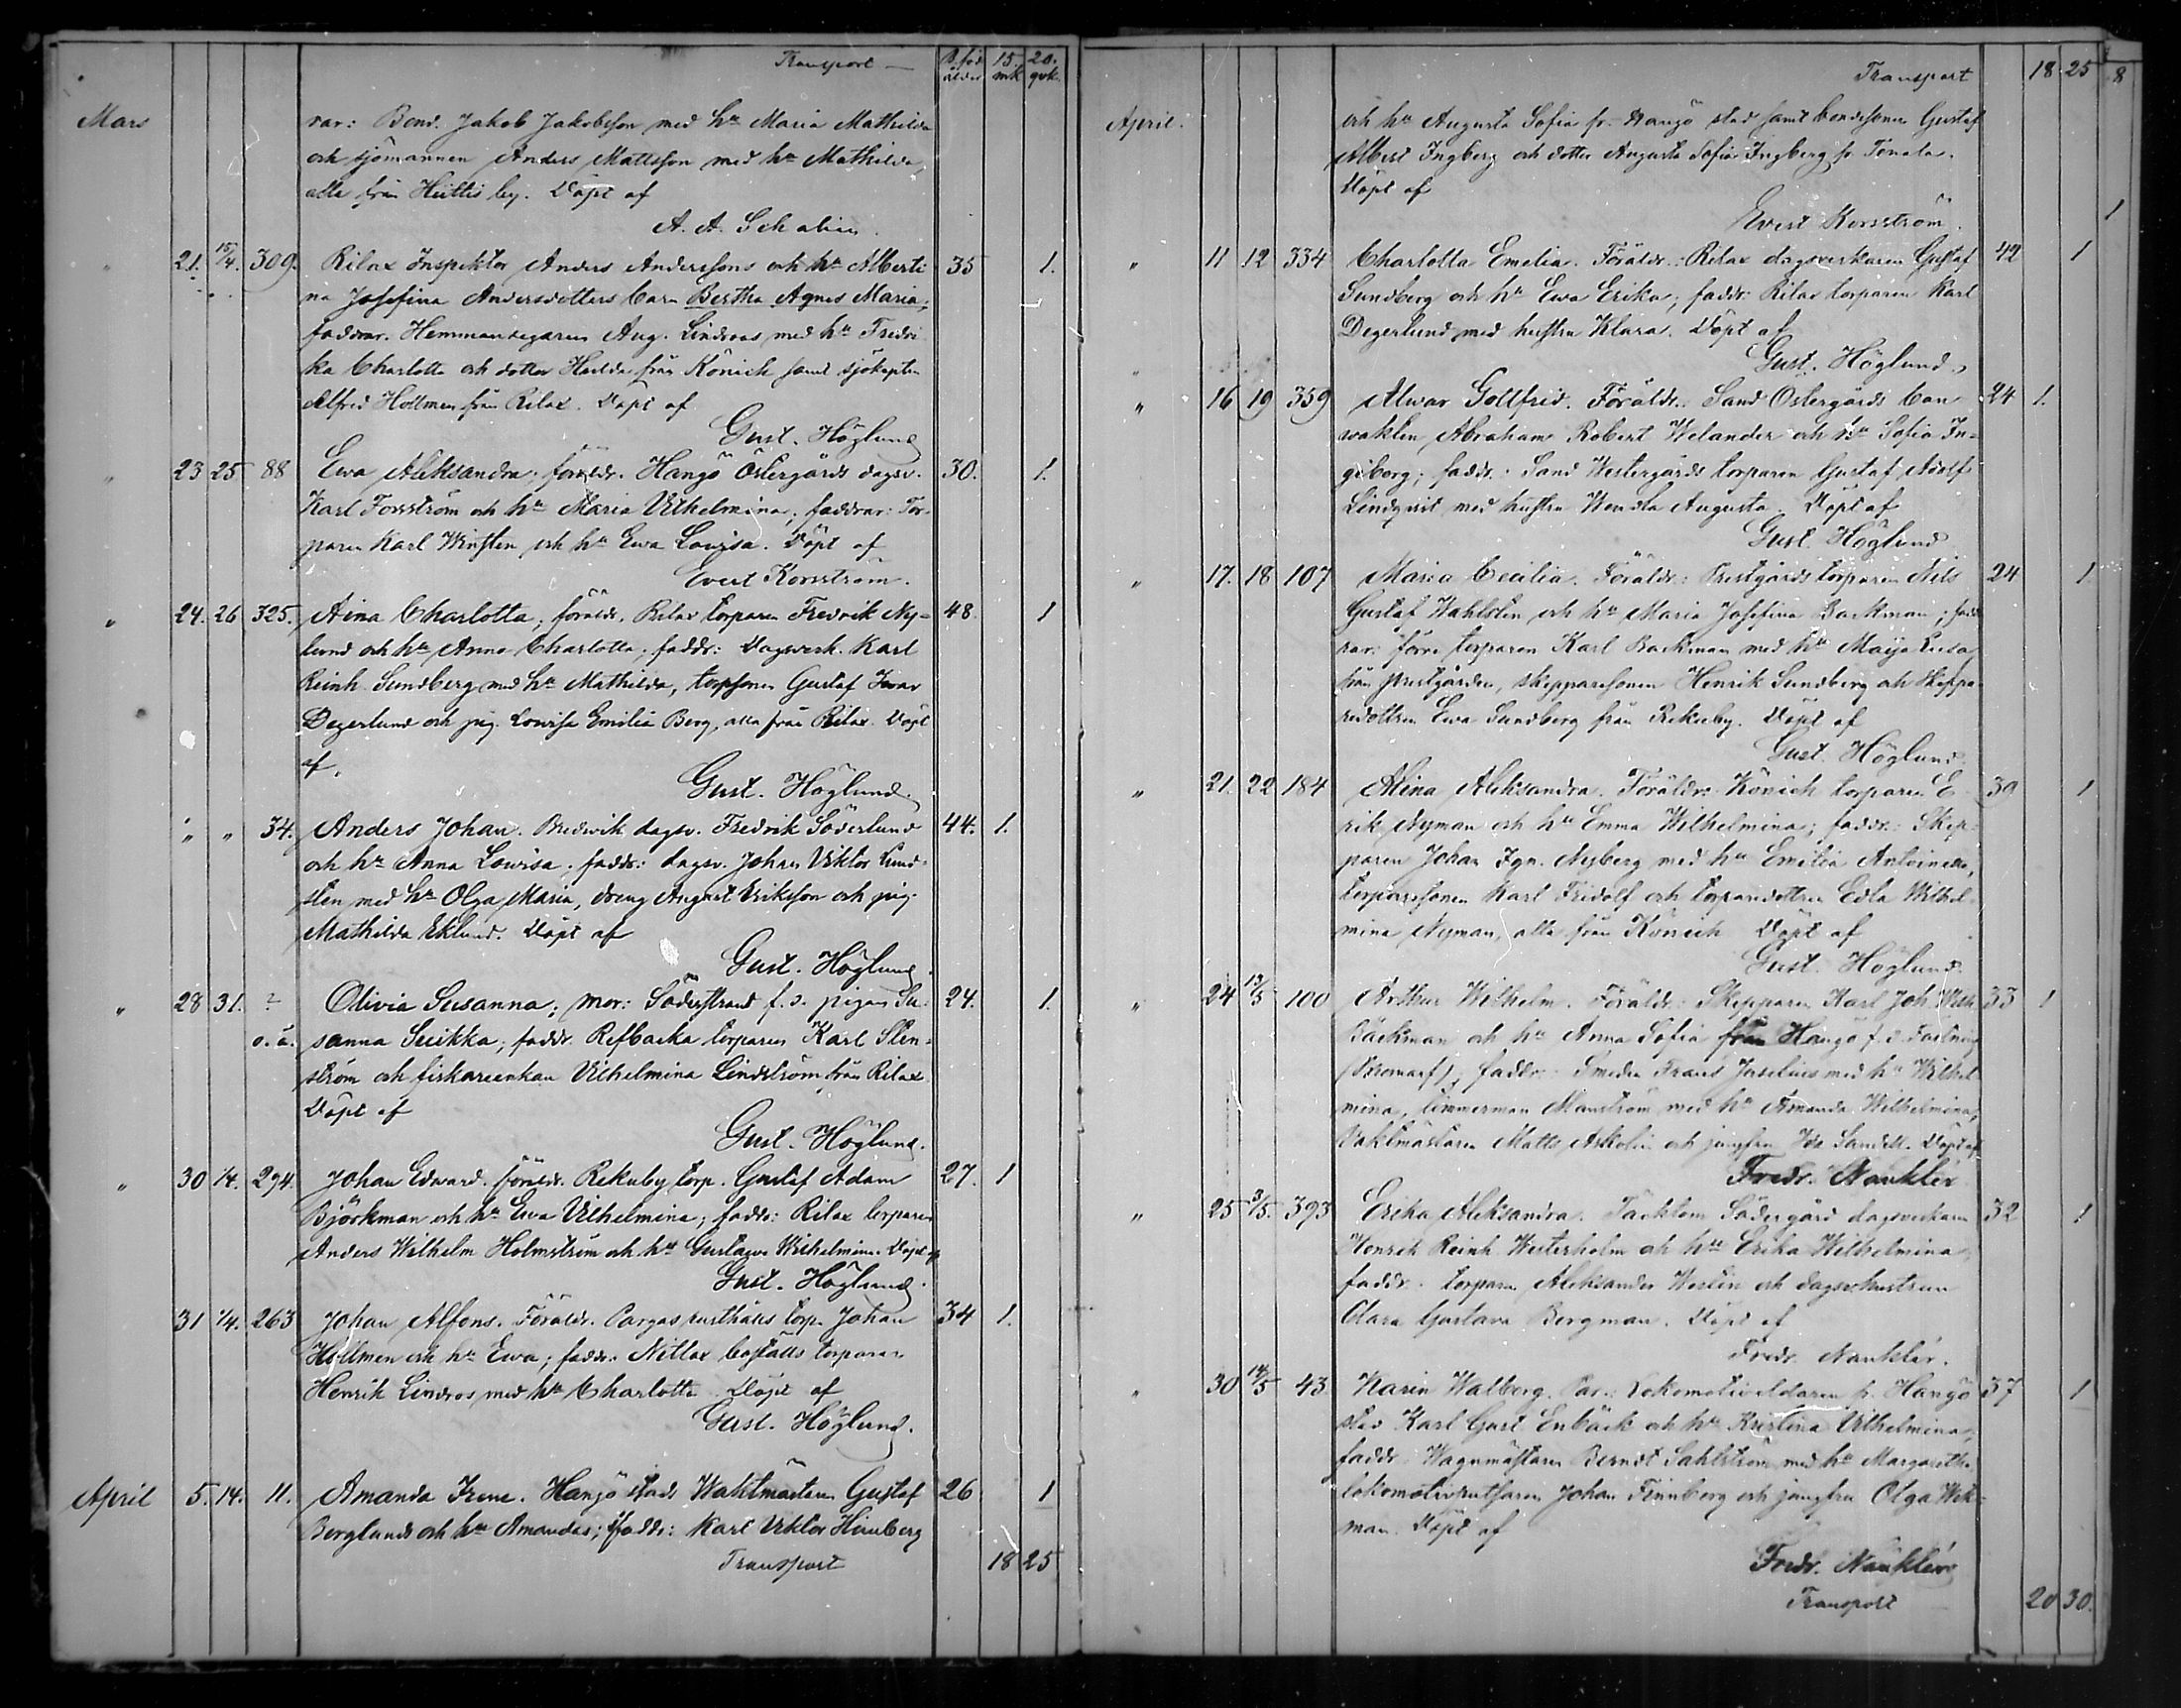 Transport — B. föd. ålder 15. mk 20. qvk.
Mars rar: Bond. Jakob Jakobsson med hu Maria Mathilda
och sjömannen Anders Mattsson med hu Mathilda,
alla från Hiittis by. Döpt af
A. A. Schalien.
" 21. 15/4. 309. Rilax Inspektor Anders Anderssons och hu Alberti 35 1.
na Josefina Andersdotters barn Bertha Agnes Maria;
faddrar. Hemmansegaren Aug. Lindroos med hu Fredri
ka Charlotta och dotter Hulda från Könich samt sjökapten
Alfred Hollmen från Rilax. Döpt af
Gust. Höglund
" 23 25 88 Ewa Aleksandra; föräldr. Hangö Östergårds dagsv. 30. 1.
Karl Forsström och hu Maria Vilhelmina; faddrar: Tor-
paren Karl Winsten och hu Ewa Lovisa. Döpt af
Evert Korsström.
" 24. 26 325. Aina Charlotta; föräldr. Rilax torparen Fredrik Ny- 48 1
lund och hu Anna Charlotta; faddr: Dagsverk. Karl
Reinh. Sundberg med hu Mathilda, torpsonen Gustaf Ivar
Degerlund och pig. Lovisa Emilia Berg, alla från Rilax. Döpt
af.
Gust. Höglund.
" " 34. Anders Johan. Bredvik dagsv. Fredrik Söderlund 44. 1.
och hu Anna Lowisa; faddr: dagsv. Johan Viktor Lund-
sten med hu Olga Maria, dreng August Eriksson och pig.
Mathilda Eklund. Döpt af
Gust. Höglund.
" 28 31. ? Olivia Susanna; mor: Söderstrand f. d. pigan Su- 24. 1.
o. ä. sanna Seikka; faddr. Refbacka torparen Karl Sten-
ström och fiskareenkan Vilhelmina Lindström från Rilax
Döpt af
Gust. Höglund.
" 30 1/4. 294. Johan Edward. föräldr. Rekuby torp. Gustaf Adam 27. 1
Björkman och hu Ewa Vilhelmina; faddr: Rilax torparen
Anders Wilhelm Holmström och hu Gustava Wilhelmina. Döpt af
Gust. Höglund.
31 1/4. 263 Johan Alfons. Föräldr. Pargas rusthålls torp. Johan 34 1.
Hollmen och hu Ewa; faddr: Nitlax boställs torparen
Henrik Lindros med hu Charlotta. Döpt af
Gust. Höglund.
April 5. 14. 11. Amanda Irene. Hangö stads Waktmästaren Gustaf 26 1
Berglunds och hu Amandas; faddr: Karl Viktor Himberg
Transport 18 25
Transport 18 25 8
April. och hu Augusta Sofia fr. Hangö stad samt bondsonen Gustaf
Albert Ingberg och dotter Augusta Sofia Ingberg fr Tenala.
Döpt af
Evert Korsström. 1
" 11 12 334 Charlotta Emelia. Föräldr: Rilax dagsverkaren Gustaf 42 1
Sundberg och hu Ewa Erika; faddr: Rilax torparen Karl
Degerlund med hustru Klara. Döpt af
Gust. Höglund.
" 16 19 359 Alwar Gottfrid. Föräldr: Sand Östergårds ban 24 1.
wakten Abraham Robert Welander och hu Sofia In-
geborg; faddr: Sand Westergårds torparen Gustaf Adolf
Lindqvist med hustru Wendla Augusta. Döpt af
Gust. Höglund
" 17. 18 107 Maria Cecilia. Föräldr: Prestgårds torparen Nils 24 1.
Gustaf Wahlsten och hu Maria Josefina Backman; fadd
rar: förre torparen Karl Backman med hu Maija Lisa
från prestgården, skepparesonen Henrik Sundberg och skeppa-
redottren Ewa Sundberg från Rekuby. Döpt af
Gust. Höglund.
" 21. 22 184 Alina Aleksandra. Föräldr: Könich torparen E- 30 1
rik Nyman och hu Emma Wilhelmina; faddr: Skep-
paren Johan Ign. Nyberg med hu Emilia Antoinetta,
torparesonen Karl Fridolf och torparedottren Edla Wilhel-
mina Nyman, alla från Könich Döpt af
Gust. Höglund.
" 24 13/5 100 Arthur Wilhelm. Föräldr: Skepparen Karl Joh. Wilh. 33 1
Bäckman och hu Anna Sofia från Hangö f. d. Fastning
(Skomarf); faddr: Smeden Frans Joselius med hu Wilhel-
mina, timmerman Manström med hu Amanda Wilhelmina,
Vaktmästaren Matts Askolin och jungfru Ida Sandell. Döpt af
Fredr. Nauklér
" 25 3/5. 393 Erika Aleksandra. Täcktom Södergård dagsverkaren 32 1
Henrik Reinh. Westerholm och hu Erika Wilhelmina;
faddr: torparen Aleksander Westin och dagsv.hustrun
Clara Gustava Bergman. Döpt af
Fredr. Nauklér.
" 30 14/5 43 Karin Walborg. Par.: Lokomotiveldaren fr. Hangö 37 1
stad Karl Gust Enbäck och hu Kristina Vilhelmina,
faddr. Wagnmästaren Berndt Sahlström med hu Margaretha,
lokomotivputsaren Johan Finnberg och jungfru Olga Wik-
man. Döpt af
Fredr. Nauklér
Transport 20 30.